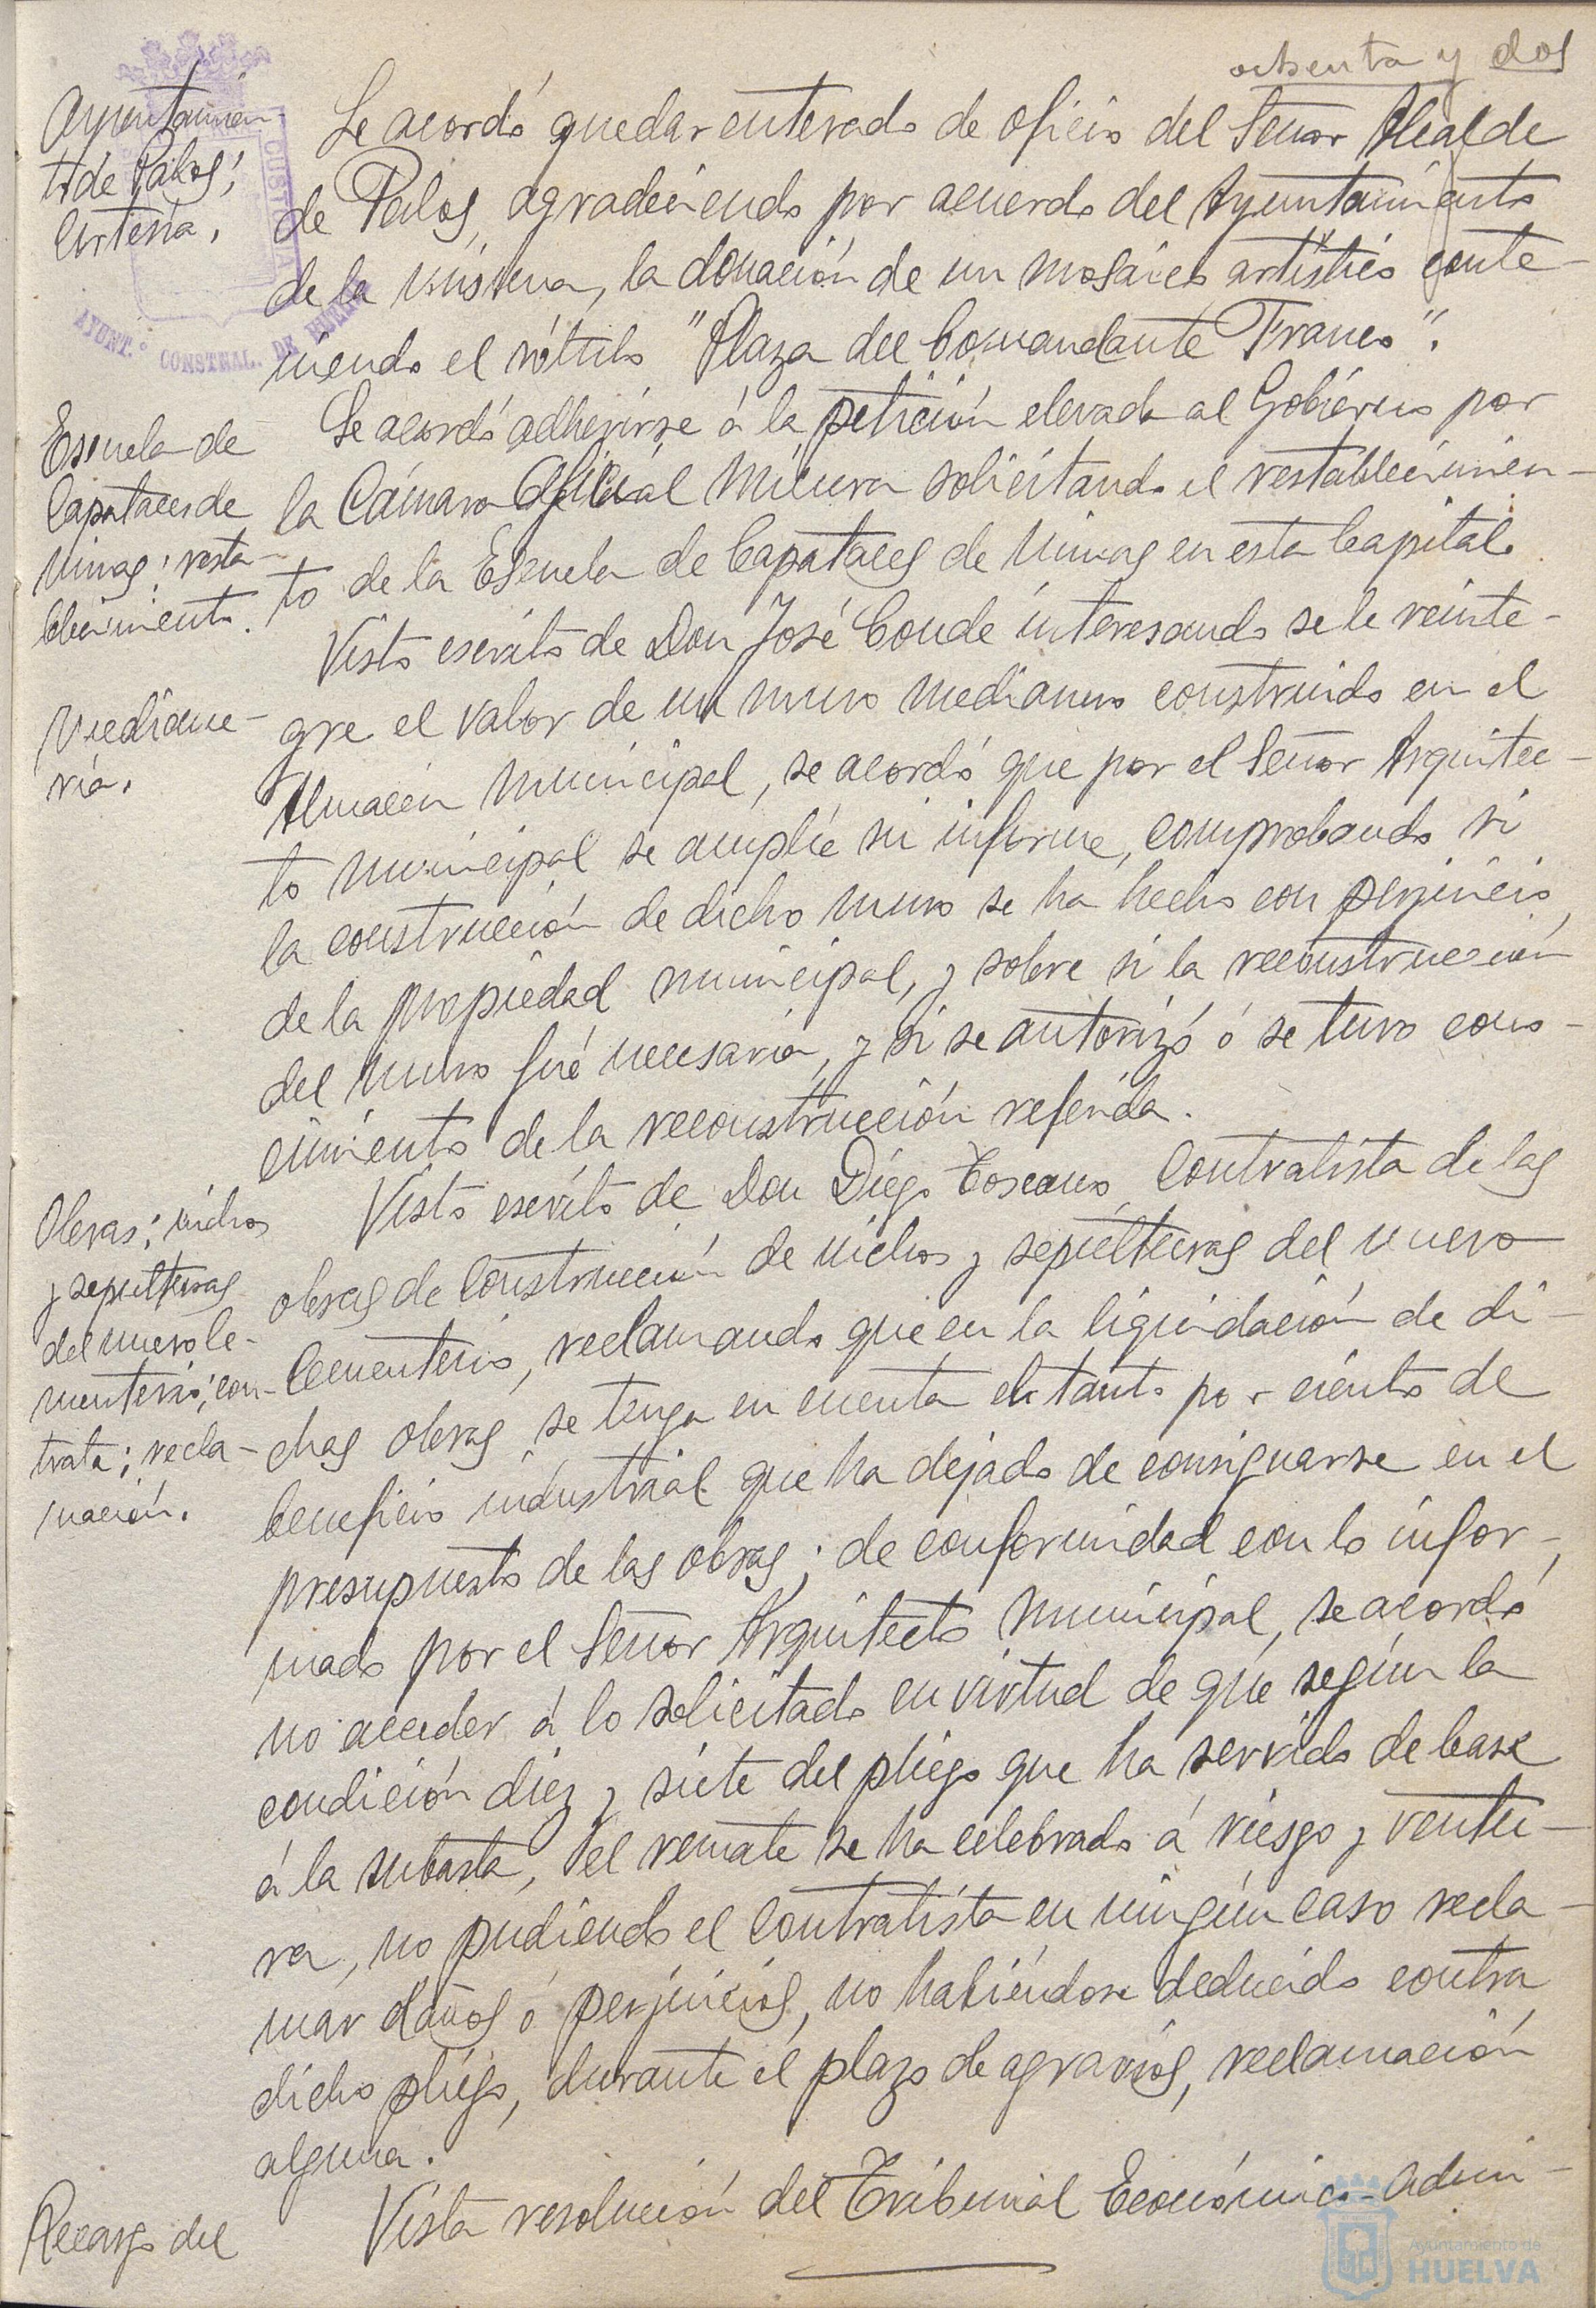 ochenta y dos
Ayuntamien-
to de Palos;
Cortesía.
Se acordó quedar enterado de oficio del Señor Alcalde
de Palos, agradeciendo por acuerdo del Ayuntamiento
de la misma, la donación de un mosaico artístico conte-
niendo el rótulo "Plaza del Comandante Franco".
Escuela de
Capataces de
Minas; resta-
blecimiento.
Se acordó adherirse á la petición elevada al Gobierno por
la Cámara Oficial Minera solicitando el restablecimien-
to de la Escuela de Capataces de Minas en esta Capital.
Mediane-
ría.
Visto escrito de Don José Conde interesando se le reinte-
gre el valor de un muro medianero construido en el
Almacén municipal, se acordó que por el Señor Arquitec-
to municipal se amplíe su informe, comprobando si
la construcción de dicho muro se ha hecho con perjuicio
de la propiedad municipal, y sobre si la reconstrucción
del muro fué necesaria, y si se autorizó ó se tuvo cono-
cimiento de la reconstrucción referida.
Obras; nichos
y sepulturas
del nuevo Ce-
menterio; con-
trata; recla-
mación.
Visto escrito de Don Diego Toscano, Contratista de las
obras de Construcción de nichos y sepulturas del nuevo
Cementerio, reclamando que en la liquidación de di-
chas obras se tenga en cuenta el tanto por ciento de
beneficio industrial que ha dejado de consignarse en el
presupuesto de las obras; de conformidad con lo infor-
mado por el Señor Arquitecto Municipal, se acordó
no acceder á lo solicitado en virtud de que según la
condición diez y siete del pliego que ha servido de base
á la subasta, el remate se ha celebrado á riesgo y ventu-
ra, no pudiendo el Contratista en ningún caso recla-
mar daños ó perjuicios, no habiéndose deducido contra
dicho pliego, durante el plazo de agravios, reclamación
alguna.
Recargo del
Vista resolución del Tribunal Económico-Admi-
CUSTODIA
AYUNT.º CONSTNAL. DE HUELVA
Ayuntamiento de
HUELVA